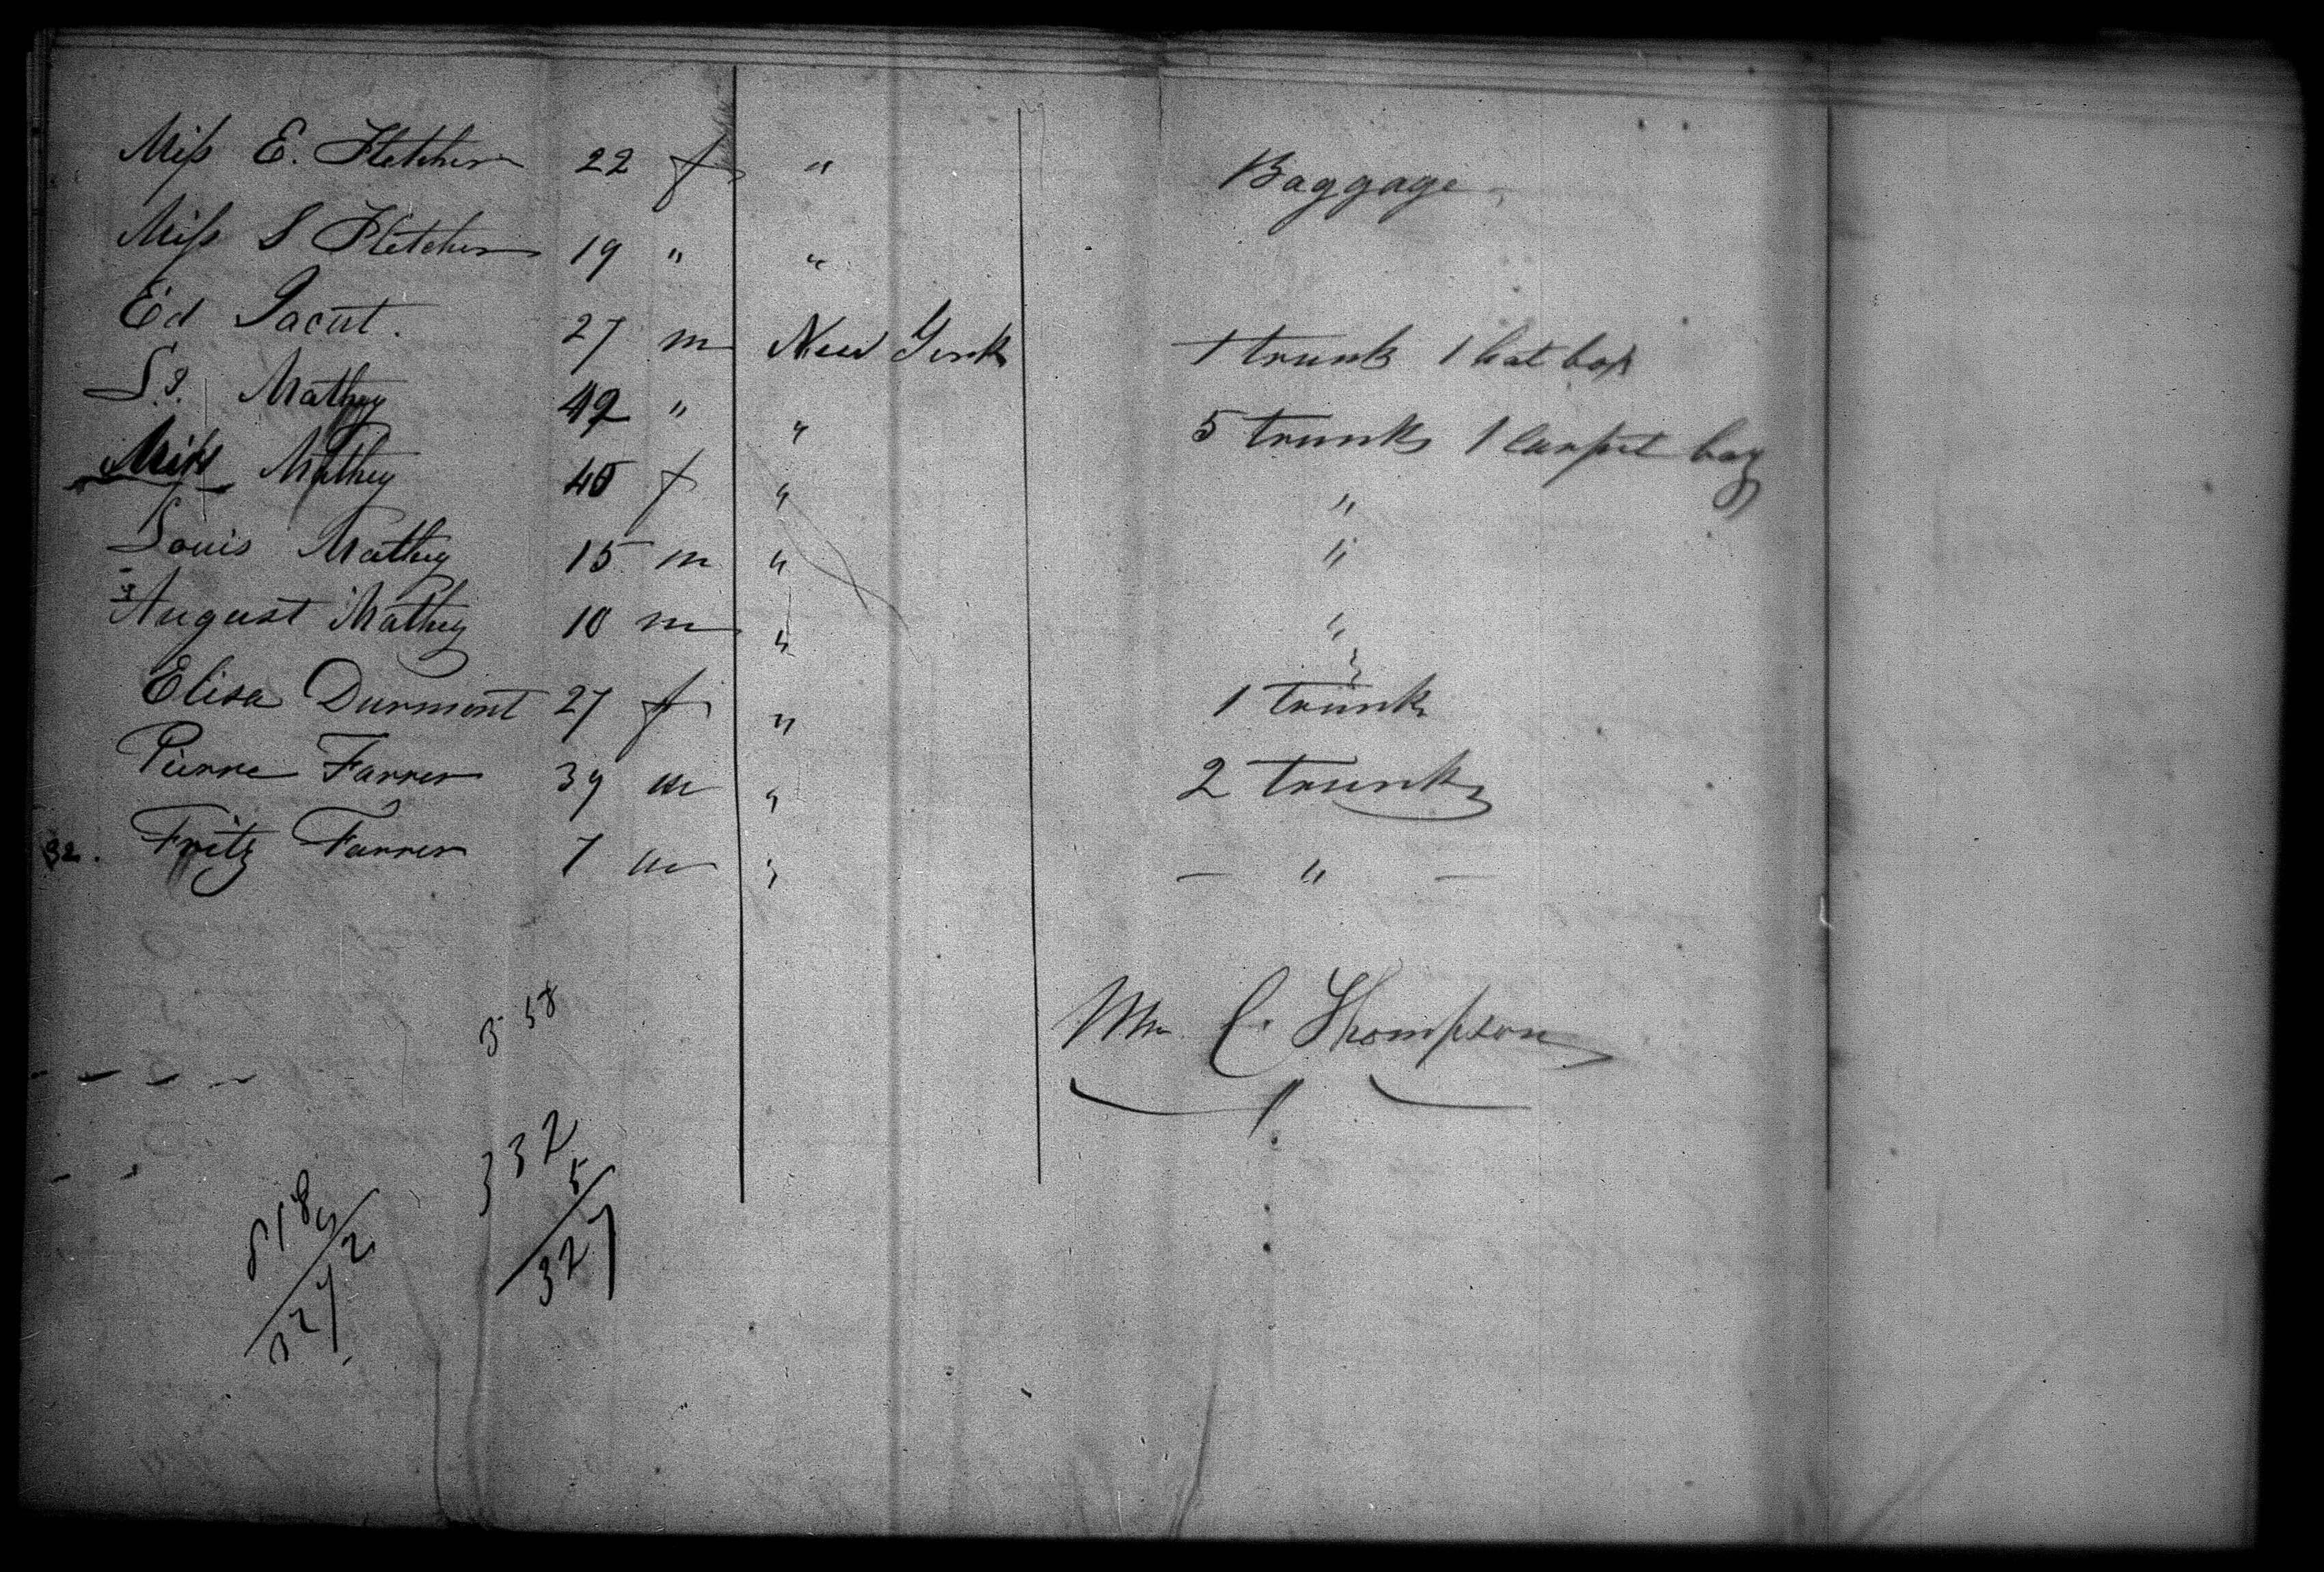 Miss E. Fletcher 22 f " Baggage
Miss S Fletcher 19 " "
Ed Jacut. 27 m New York 1 trunk 1 hat box
L. J. Mathey 42 " " 5 trunks 1 carpet bag
Mathey 40 f " "
Louis Mathey 15 m " "
August Mathey 10 m " "
Elisa Durmont 27 f " 1 trunk
Pierre Farrer 39 m " 2 trunks
32. Fritz Farrer 7 m " — " —
Wm C. Thompson
332
5
327